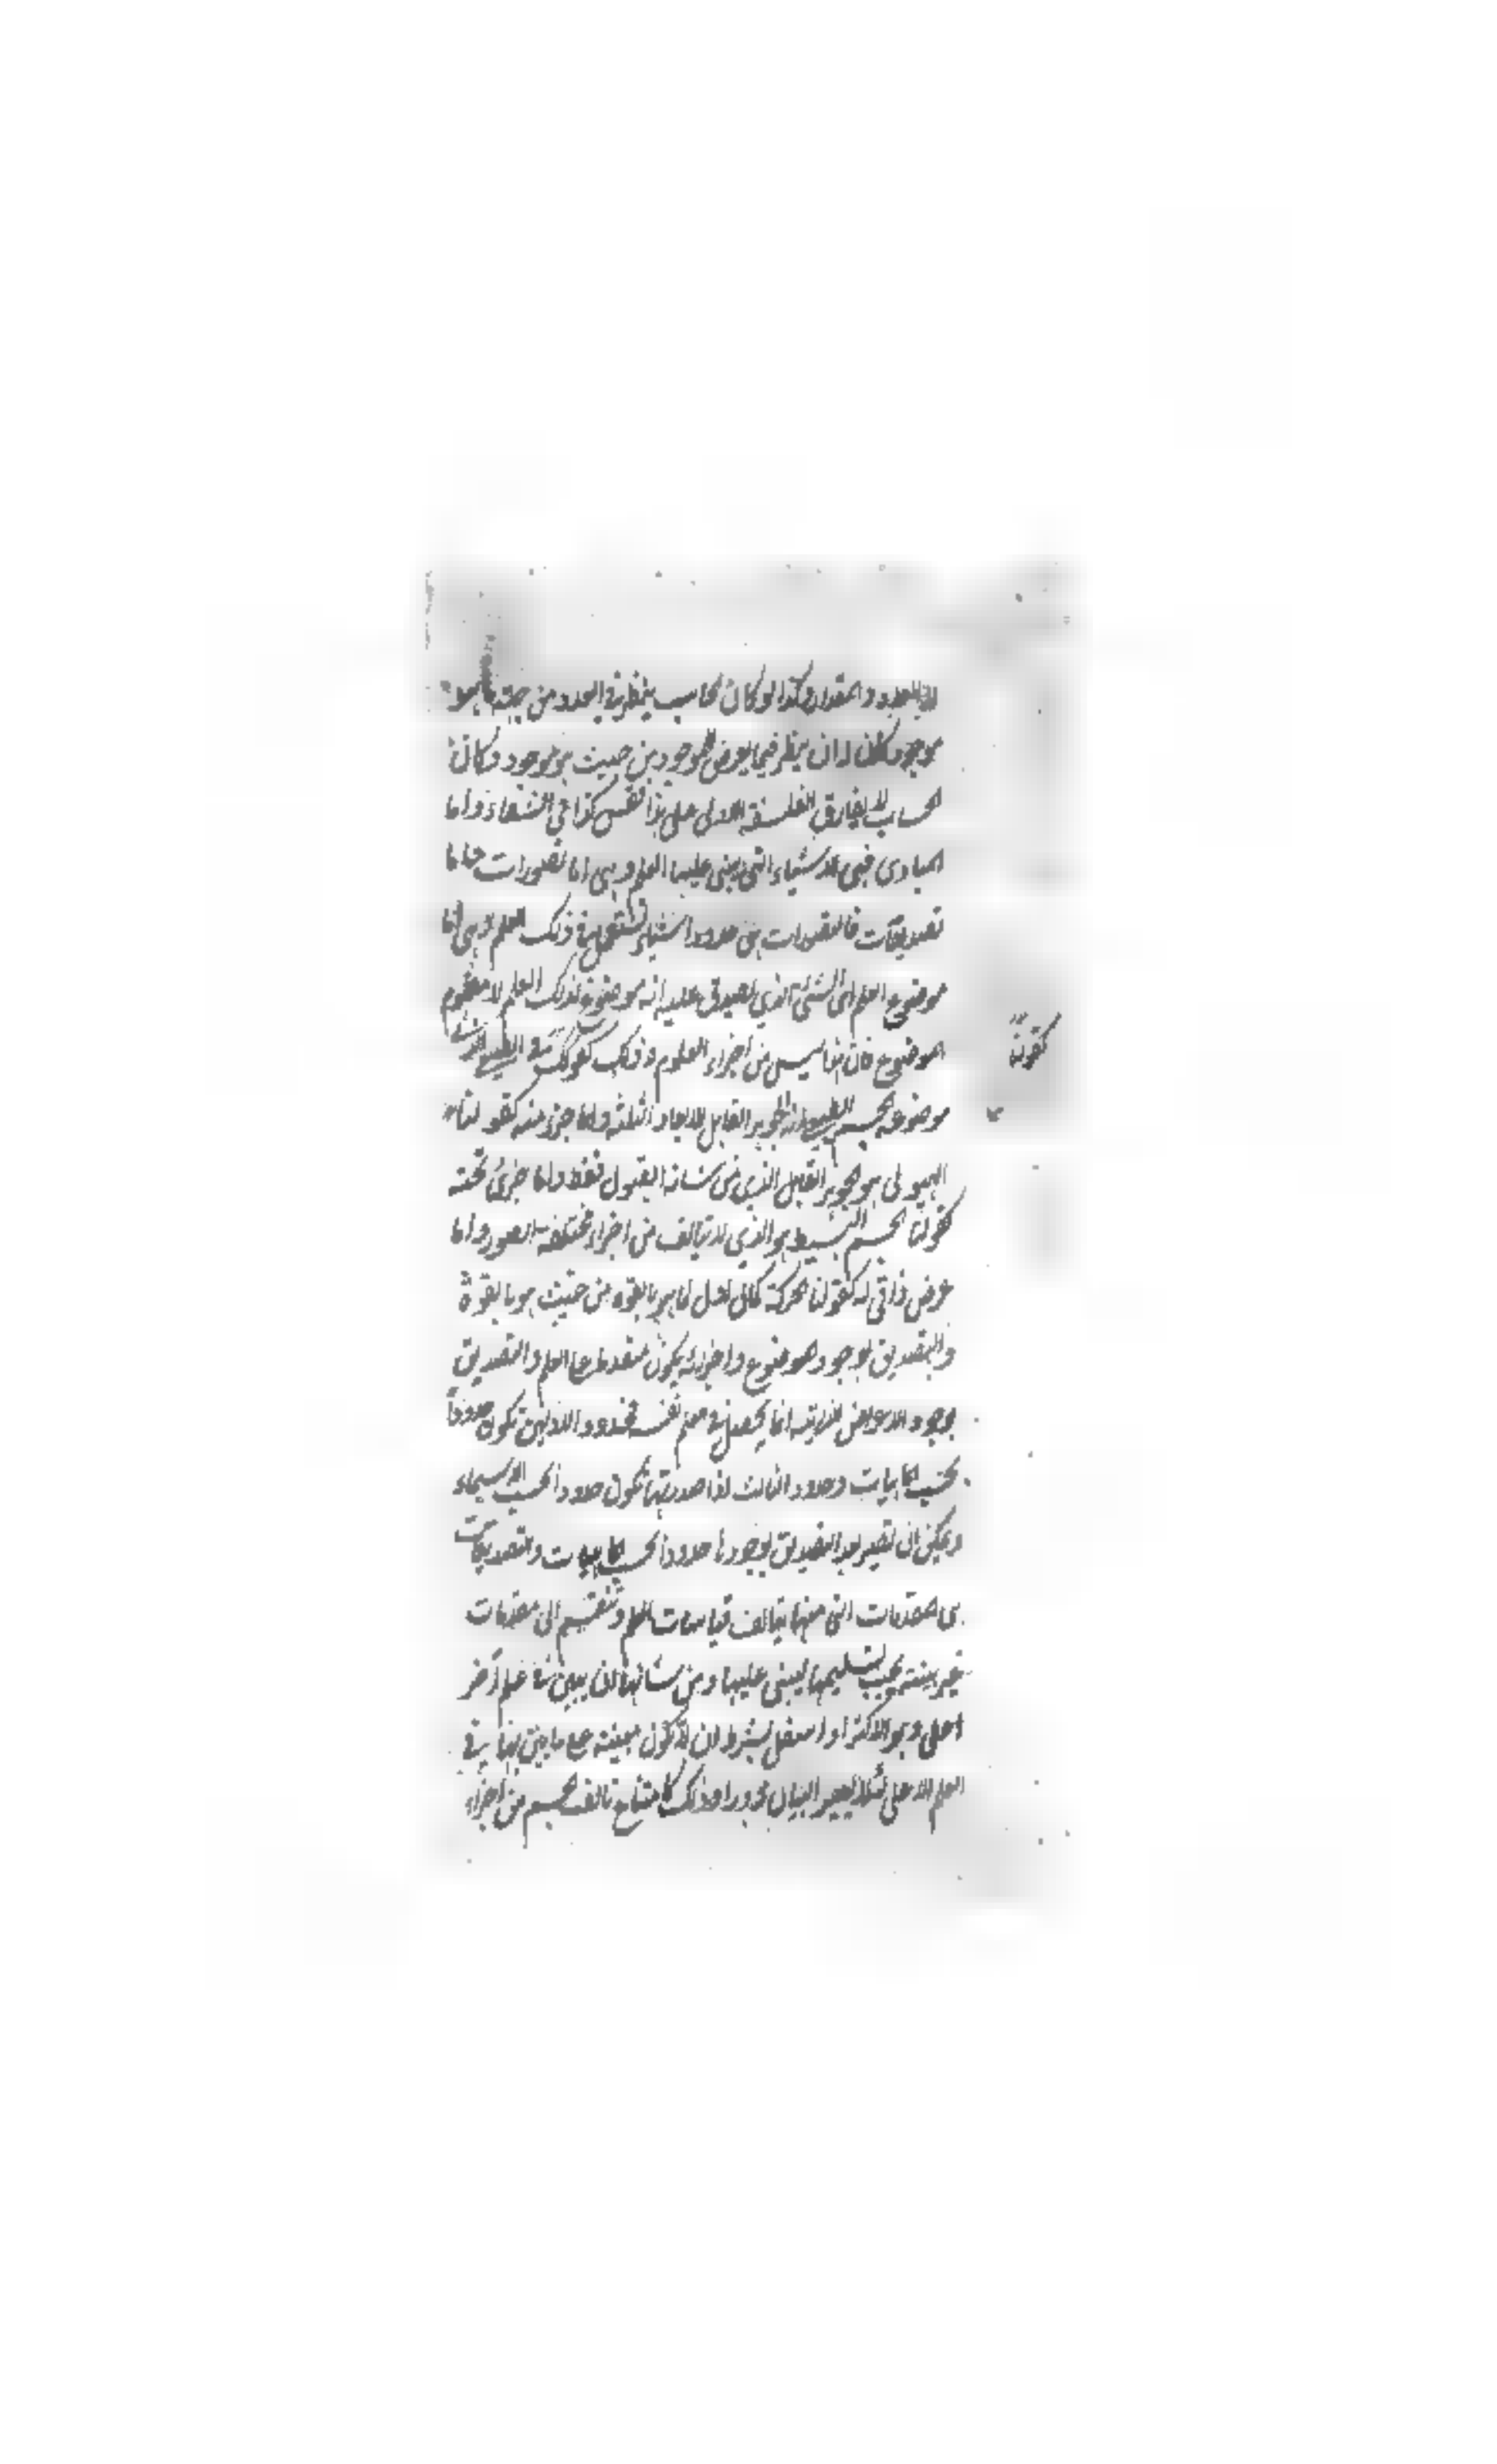 للعدد والمقدار وكذا لو كان الحاسب ينظر في العدد من جهة ما هو
موجود كان له ان ينظر فيما يعرض للموجود من حيث هو موجود وكان
الحساب لا يفارق الفلسفة الاولى على هذا فقس كذا في الشفاء واما
المبادى فهي الاشياء التي يبنى عليها العلم وهي اما تصورات واما
تصديقات فالتصورات هي حدود اشياء تستعمل في ذلك العلم وهي اما
موضوع العلم اى الشئ الذي يصدق عليه انه موضوع لذلك العلم لا مفهوم
الموضوع فان ليس من اجزاء العلوم وذلك كقولك في الطبيعي
موضوعه الجسم الطبيعي انه الجوهر القابل للابعاد الثلثة واما جزء منه كقولنا
الهيولى هو الجوهر القابل الذي من شانه القبول فقط واما جزئى تحته
كقولنا الجسم البسيط هو الذي لا يتالف من اجزاء مختلفة الصور واما
عرض ذاتى له كقولنا الحركة كمال اول لما هو بالقوه من حيث هو بالقوة
والتصديق بوجود الموضوع واجزائه يكون متقدما على العلم والتصديق
بوجود الاعراض الذاتية انما يحصل في العلم نفسه فحدود الاولين تكون حدودا
بحسب الماهيات وحدود الثالث اذا صدرتها تكون حدودا بحسب الاسماء
ويمكن ان تصير بعد التصديق بوجودها حدودا بحسب الماهيات والتصديقات
هي المقدمات التي منها يتالف قياسات العلم وتنقسم الى مقدمات
غير بينة يجب تسليمها ليبنى عليها ومن شانها ان يبين في علم آخر
اعلى وهو الاكثر او اسفل بشرط ان لا تكون مبينة مع ما يبتنى بها في
العلم الاعلى لئلا يصير البيان دورا وذلك كامتناع تالف الجسم من اجزاء
كقولنا